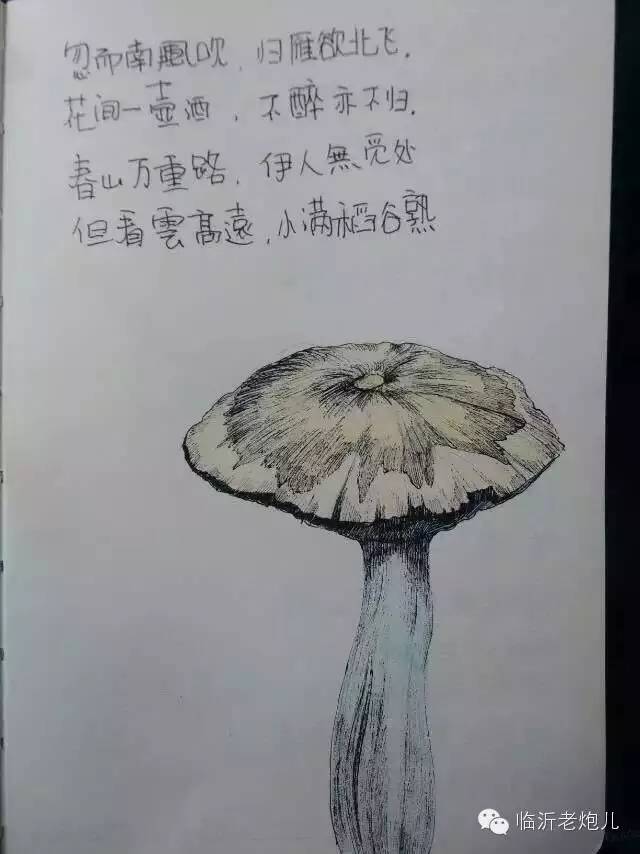 忽而南風吹，归雁欲北飞。
花间一壶酒，不醉亦不归。
春山万重路，伊人無觅处
但看雲高遠，小满稻谷熟
临沂老炮儿